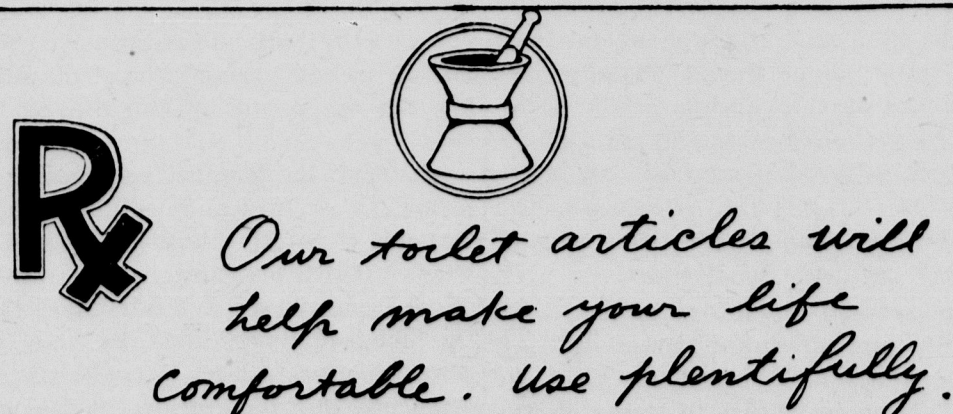 Rx
Our toilet articles will
help make your life
comfortable. Use plentifully.